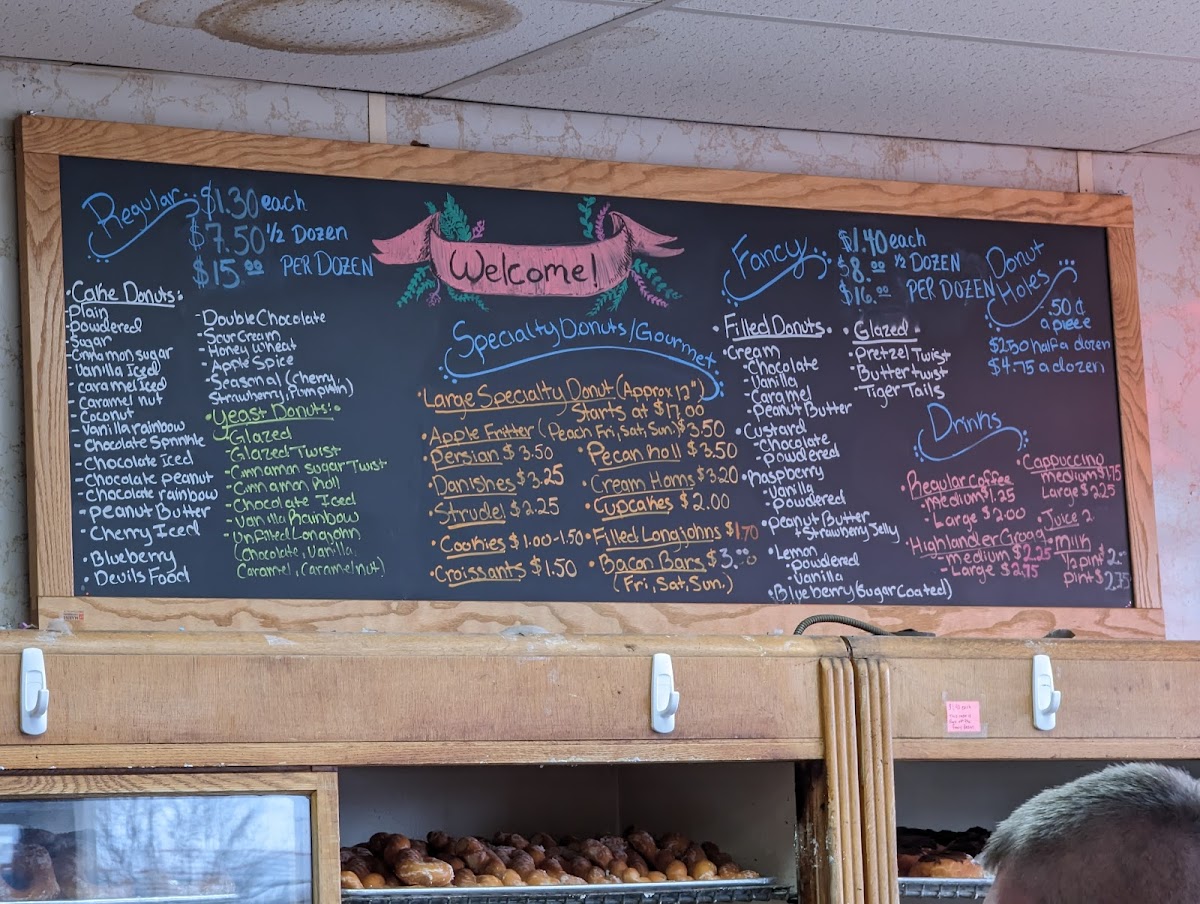 Regular
$1.30 each
$7.50 ½ Dozen
$15.00 PER DOZEN
Cake Donuts:
Plain
Powdered
Sugar
Cinnamon sugar
Vanilla Iced
caramel iced
Caramel nut
Coconut
Vanilla rainbow
Chocolate Sprinkle
Chocolate Iced
Chocolate peanut
Chocolate rainbow
Peanut Butter
Cherry Iced
Blueberry
Devils Food
Double Chocolate
Sour Cream
Honey Wheat
Apple Spice
Seasonal (Cherry,
Strawberry, Pumpkin)
Yeast Donuts:
Glazed
Glazed Twist
Cinnamon Sugar Twist
Cinnamon Roll
Chocolate Iced
Vanilla Rainbow
Unfilled Longjohn
(Chocolate, Vanilla,
Caramel, Caramel nut)
Welcome!
Specialty Donuts/Gourmet
Large Specialty Donut (Approx 12")
Starts at $17.00
Apple Fritter (Peach Fri, Sat, Sun.) $3.50
Persian $3.50
Danishes $3.25
Strudel $2.25
Cookies $1.00-1.50
Croissants $1.50
Pecan Roll $3.50
Cream Horns $3.20
Cupcakes $2.00
Filled Longjohns $1.70
Bacon Bars $3.00
(Fri, Sat, Sun.)
Fancy
$1.40 each
$8.00 ½ DOZEN
$16.00 PER DOZEN
Filled Donuts
Cream
Chocolate
Vanilla
Caramel
Peanut Butter
Custard
Chocolate
Powdered
Raspberry
Vanilla
Powdered
Peanut Butter
+ Strawberry Jelly
Lemon
Powdered
Vanilla
Blueberry (Sugar Coated)
Glazed
Pretzel Twist
Butter twist
Tiger Tails
Donut
Holes
.50¢
a piece
$2.50 half a dozen
$4.75 a dozen
Drinks
Regular coffee
Medium $1.25
Large $2.00
Highlander Grogg
medium $2.25
Large $2.75
Cappuccino
medium $1.75
Large $2.25
Juice 2.
Milk
½ pint $2.
pint $2.75